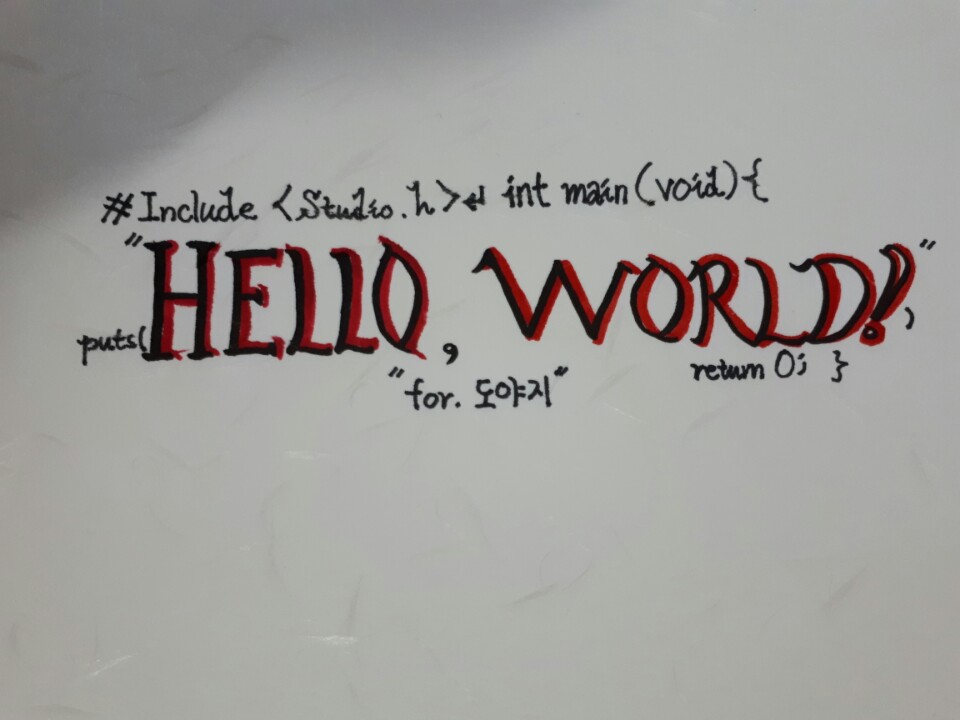 #Include <Studio.h>↵ int main(void){
puts("HELLO, WORLD!",
return 0; }
"for. 도야지"